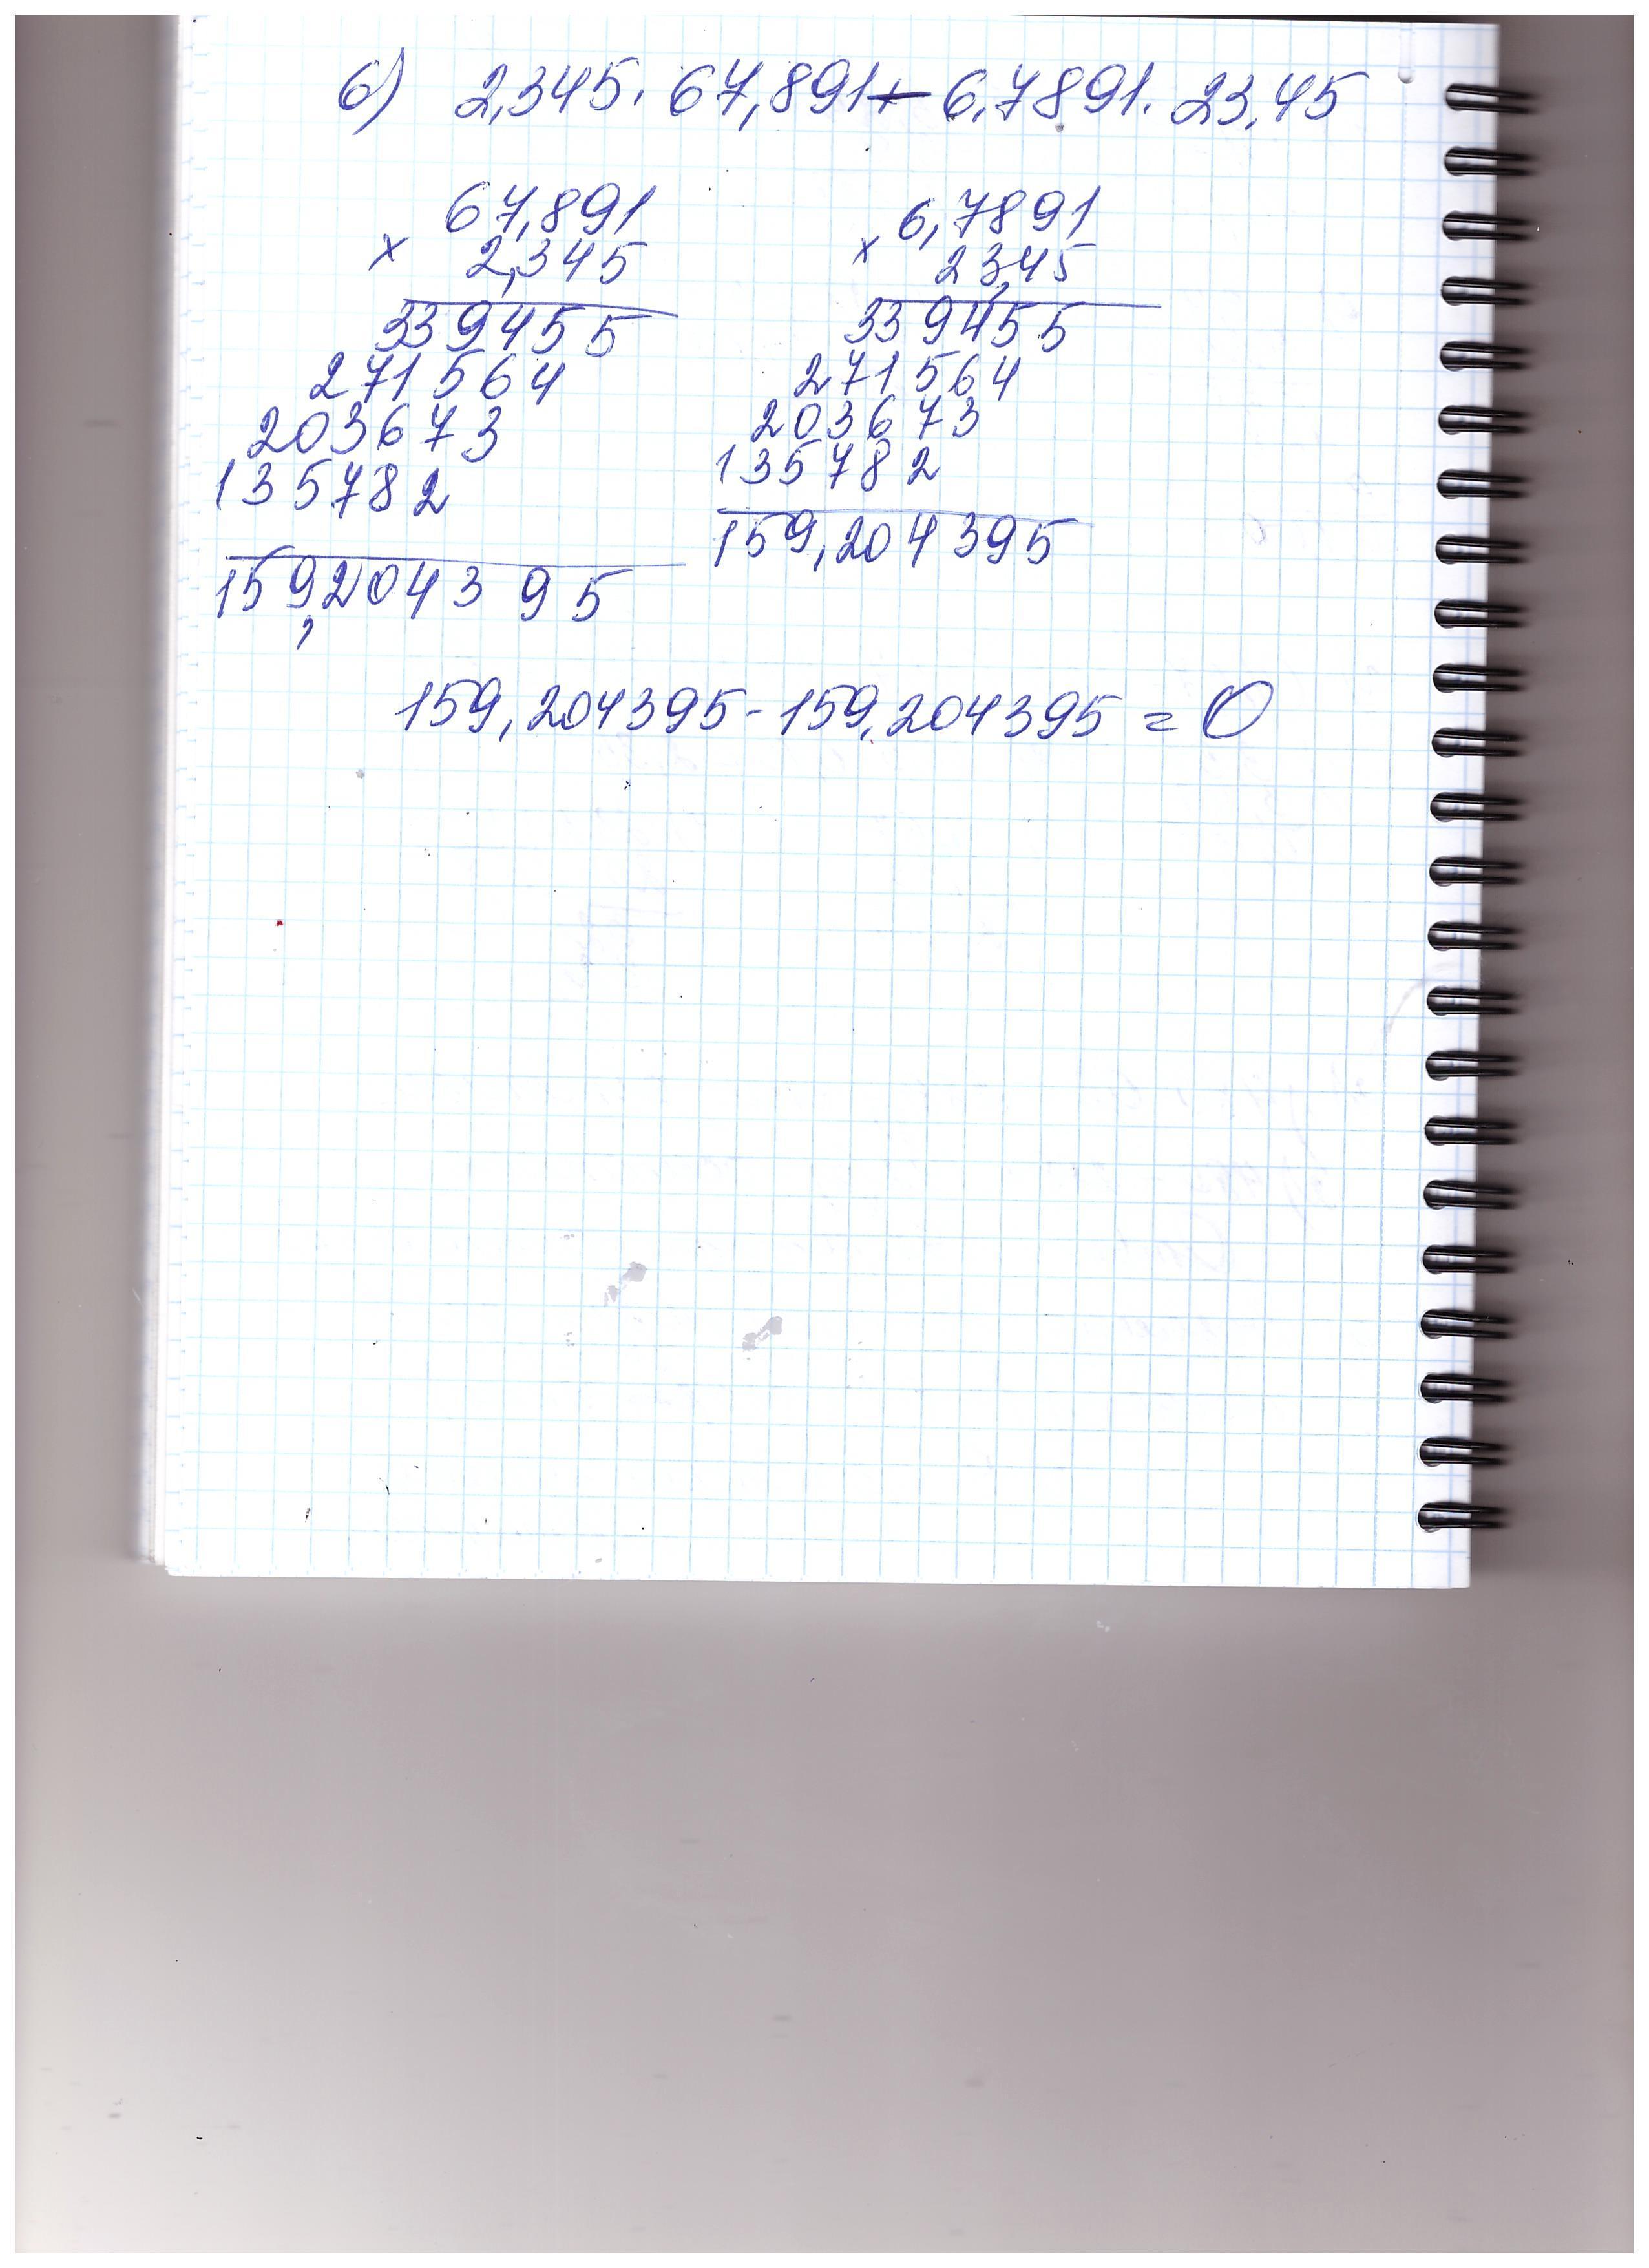 б) 2,345 · 67,891 - 6,7891 · 23,45
67,891
× 2,345
339455
271564
203673
135782
159,204395
6,7891
× 23,45
339455
271564
203673
135782
159,204395
159,204395 - 159,204395 = 0